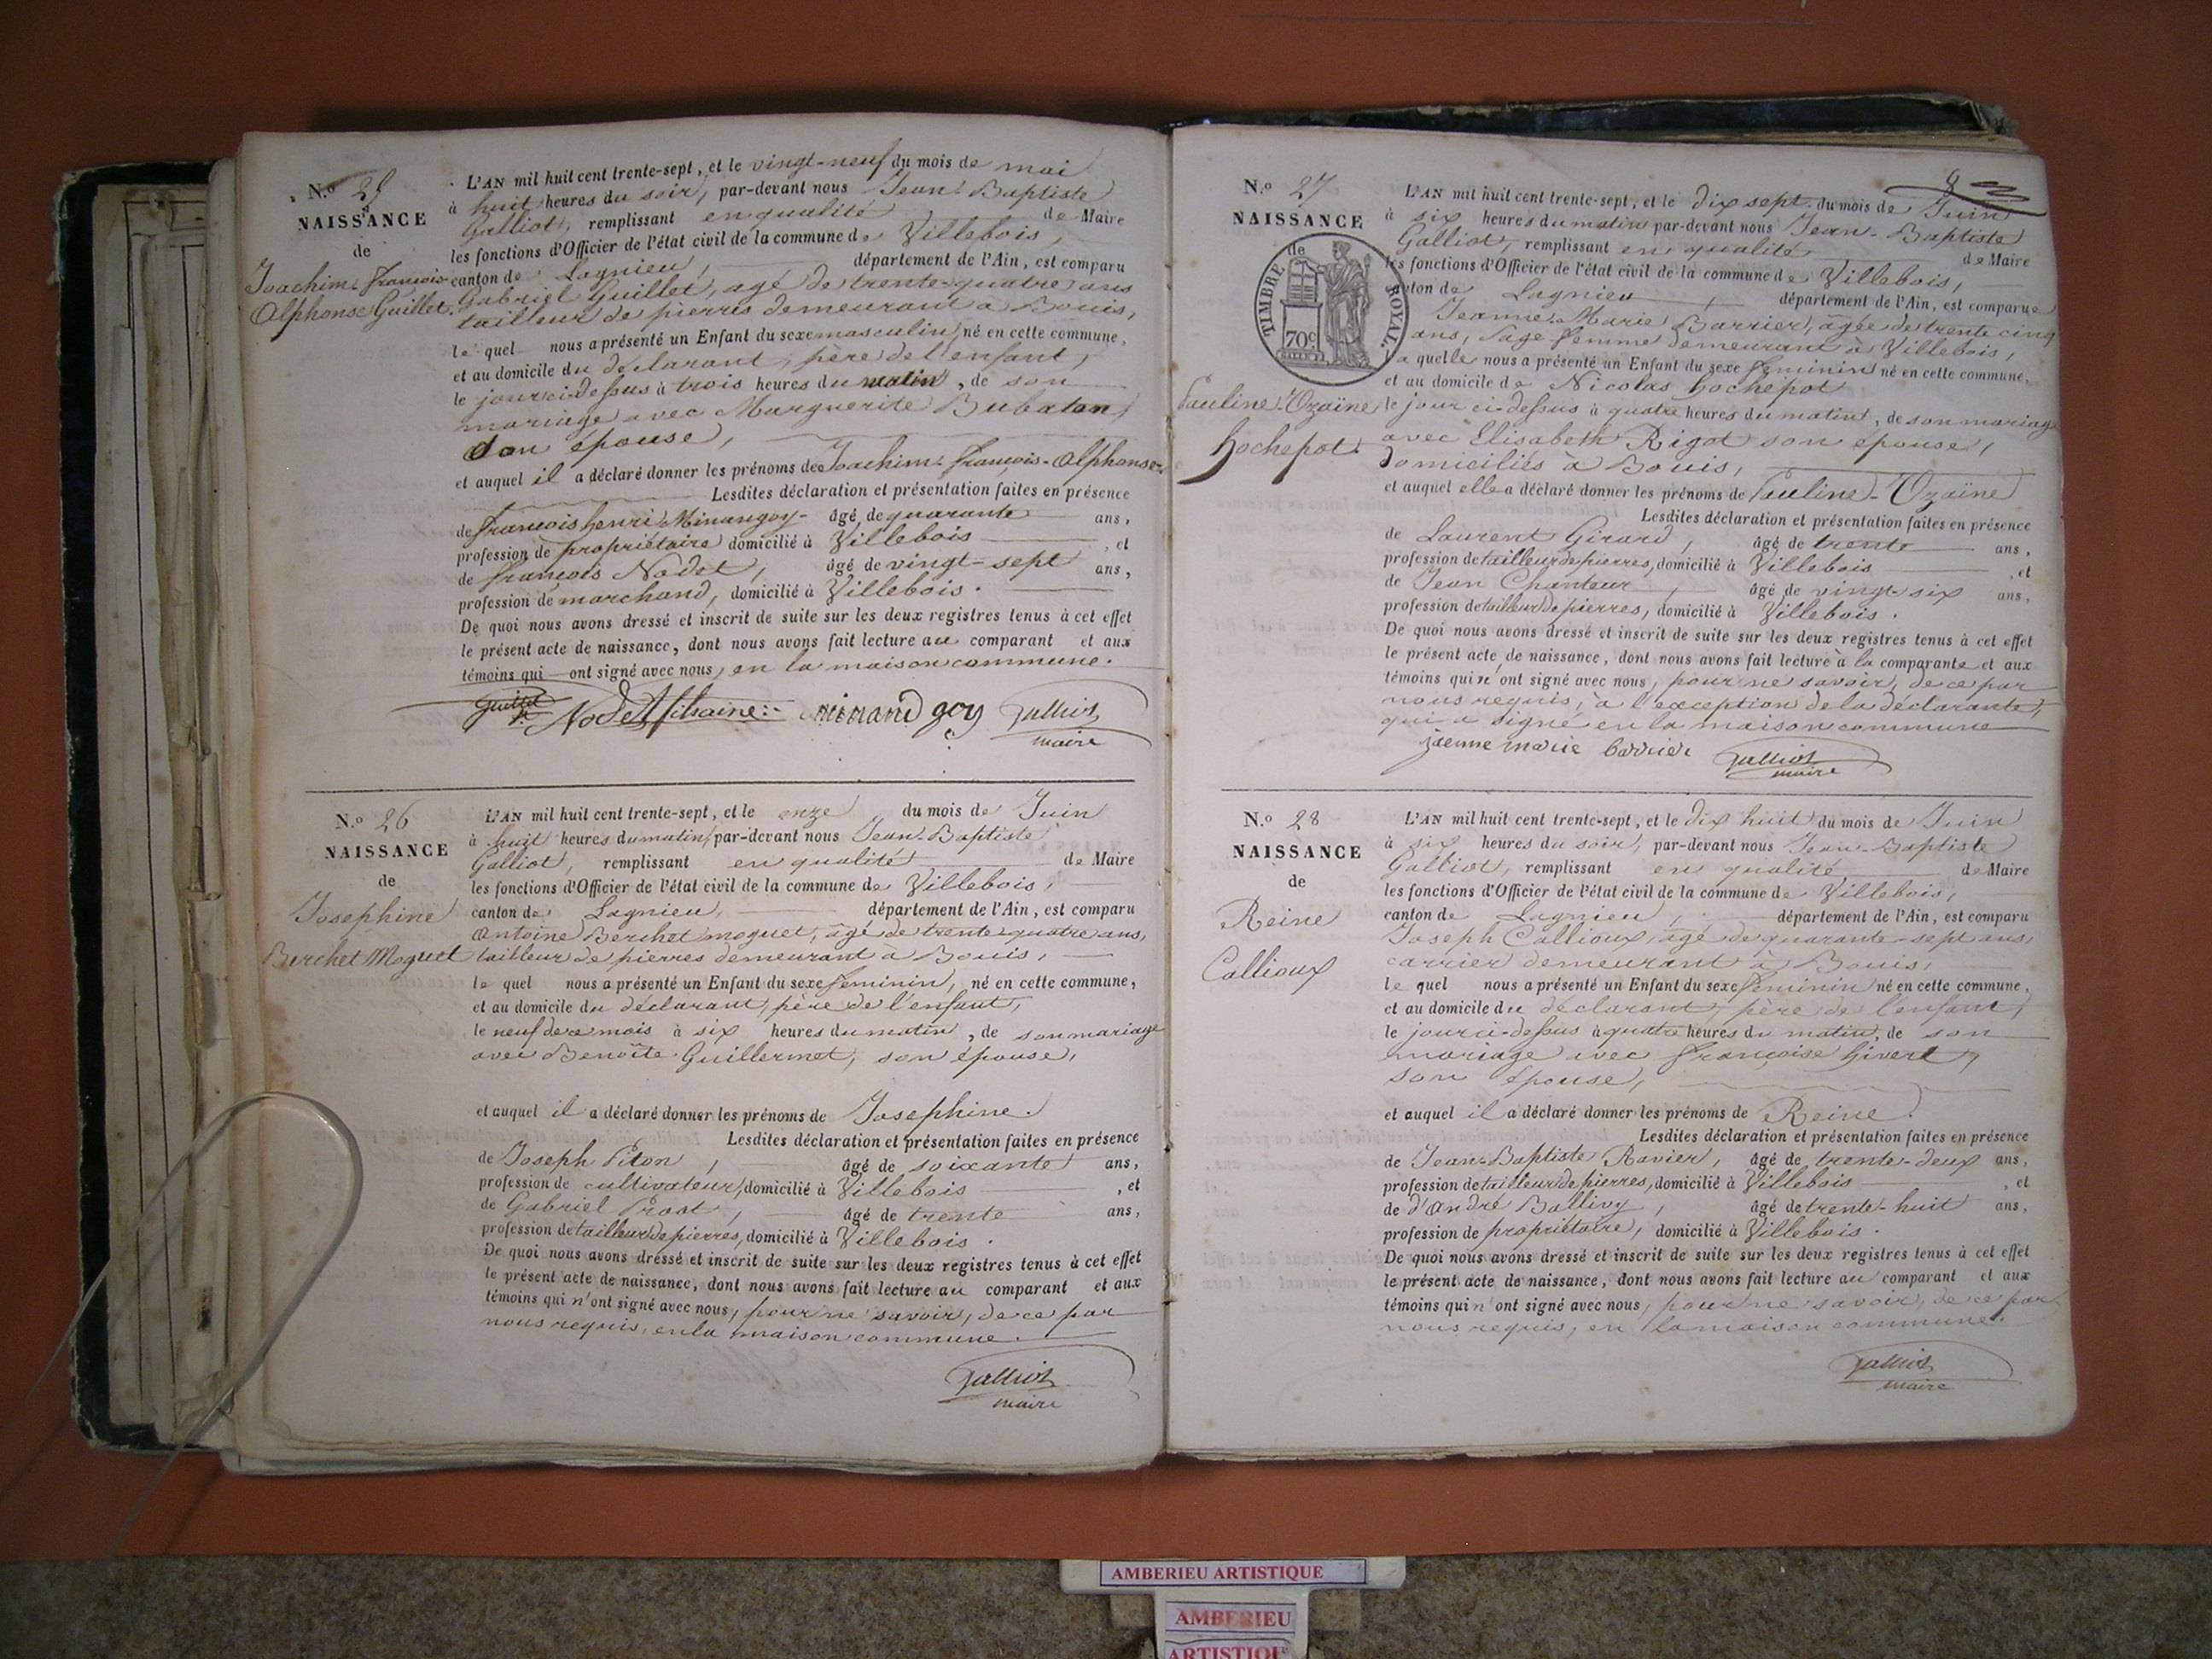 N.o 25
NAISSANCE
de
Joachim-François-
Alphonse Guillet.
L'AN mil huit cent trente-sept, et le vingt-neuf du mois de mai
à huit heures du soir, par-devant nous Jean-Baptiste
Galliot, remplissant en qualité de Maire
les fonctions d'Officier de l'état civil de la commune de Villebois,
canton de Lagnieu, département de l'Ain, est comparu
Gabriel Guillet, agé de trente-quatre ans
tailleur de pierres demeurant à Bouis,
le quel nous a présenté un Enfant du sexe masculin, né en cette commune,
et au domicile du déclarant, père de l'enfant,
le jour ci-dessus à trois heures du matin, de son
mariage avec Marguerite Bubaton
son épouse,
et auquel il a déclaré donner les prénoms de Joachim-François-Alphonse
Lesdites déclaration et présentation faites en présence
de françois henri Minangoy âgé de quarante ans,
profession de propriétaire domicilié à Villebois, et
de françois Nodet, âgé de vingt-sept ans,
profession de marchand, domicilié à Villebois.
De quoi nous avons dressé et inscrit de suite sur les deux registres tenus à cet effet
le présent acte de naissance, dont nous avons fait lecture au comparant et aux
témoins qui ont signé avec nous, en la maison commune.
Guillet Nodet minand goy Galliot
maire
N.o 26
NAISSANCE
de
Josephine
Berchet Moguet
L'AN mil huit cent trente-sept, et le onze du mois de Juin
à huit heures du matin, par-devant nous Jean-Baptiste
Galliot, remplissant en qualité de Maire
les fonctions d'Officier de l'état civil de la commune de Villebois,
canton de Lagnieu, département de l'Ain, est comparu
Antoine Berchet moguet, âgé de trente quatre ans,
tailleur de pierres demeurant à Bouis,
le quel nous a présenté un Enfant du sexe féminin, né en cette commune,
et au domicile du déclarant, père de l'enfant,
le neuf de ce mois à six heures du matin, de son mariage
avec Benoîte Guillermet, son épouse,
et auquel il a déclaré donner les prénoms de Josephine.
Lesdites déclaration et présentation faites en présence
de Joseph Piton, âgé de soixante ans,
profession de cultivateur, domicilié à Villebois, et
de Gabriel Prost, âgé de trente ans,
profession de tailleur de pierres, domicilié à Villebois.
De quoi nous avons dressé et inscrit de suite sur les deux registres tenus à cet effet
le présent acte de naissance, dont nous avons fait lecture au comparant et aux
témoins qui n'ont signé avec nous, pour ne savoir, de ce par
nous requis, en la maison commune.
Galliot
maire
9
N.o 27
NAISSANCE
de
TIMBRE ROYAL.
70c
Pauline-Ozaïne
hochepot
L'AN mil huit cent trente-sept, et le dix sept du mois de Juin
à six heures du matin par-devant nous Jean-Baptiste
Galliot, remplissant en qualité de Maire
les fonctions d'Officier de l'état civil de la commune de Villebois,
canton de Lagnieu, département de l'Ain, est comparue
Jeanne-Marie Barrier, âgée de trente cinq
ans, sage femme demeurant à Villebois,
laquelle nous a présenté un Enfant du sexe féminin né en cette commune,
et au domicile de Nicolas hochepot
le jour ci-dessus à quatre heures du matin, de son mariage
avec Elisabeth Rigot son épouse,
domiciliés à Bouis,
et auquel elle a déclaré donner les prénoms de Pauline-Ozaïne
Lesdites déclaration et présentation faites en présence
de Laurent Girard, âgé de trente ans,
profession de tailleur de pierres, domicilié à Villebois, et
de Jean Chanteur, âgé de vingt-six ans,
profession de tailleur de pierres, domicilié à Villebois.
De quoi nous avons dressé et inscrit de suite sur les deux registres tenus à cet effet
le présent acte de naissance, dont nous avons fait lecture à la comparante et aux
témoins qui n'ont signé avec nous, pour ne savoir, de ce par
nous requis, à l'exception de la déclarante,
qui a signé en la maison commune
jaenne marie barrier Galliot
maire
N.o 28
NAISSANCE
de
Reine
Callioux
L'AN mil huit cent trente-sept, et le dix huit du mois de Juin
à six heures du soir, par-devant nous Jean-Baptiste
Galliot, remplissant en qualité de Maire
les fonctions d'Officier de l'état civil de la commune de Villebois,
canton de Lagnieu, département de l'Ain, est comparu
Joseph Callioux, âgé de quarante-sept ans,
carrier demeurant à Bouis,
le quel nous a présenté un Enfant du sexe féminin né en cette commune,
et au domicile du déclarant, père de l'enfant,
le jour ci-dessus à quatre heures du matin, de son
mariage avec françoise hivert,
son épouse,
et auquel il a déclaré donner les prénoms de Reine.
Lesdites déclaration et présentation faites en présence
de Jean-Baptiste Ravier, âgé de trente-deux ans,
profession de tailleur de pierres, domicilié à Villebois, et
de d'andré Ballivy, âgé de trente-huit ans,
profession de propriétaire, domicilié à Villebois.
De quoi nous avons dressé et inscrit de suite sur les deux registres tenus à cet effet
le présent acte de naissance, dont nous avons fait lecture au comparant et aux
témoins qui n'ont signé avec nous, pour ne savoir, de ce par
nous requis, en la maison commune.
Galliot
maire
AMBERIEU ARTISTIQUE
AMBERIEU
ARTISTIQUE